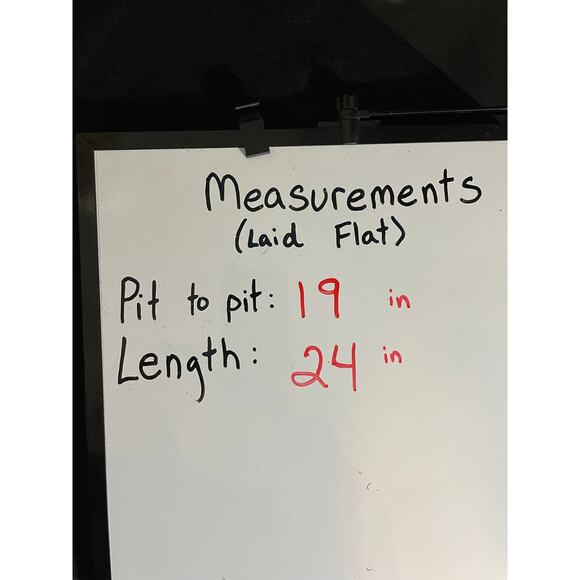 Measurements
(Laid Flat)
Pit to pit: 19 in
Length: 24 in